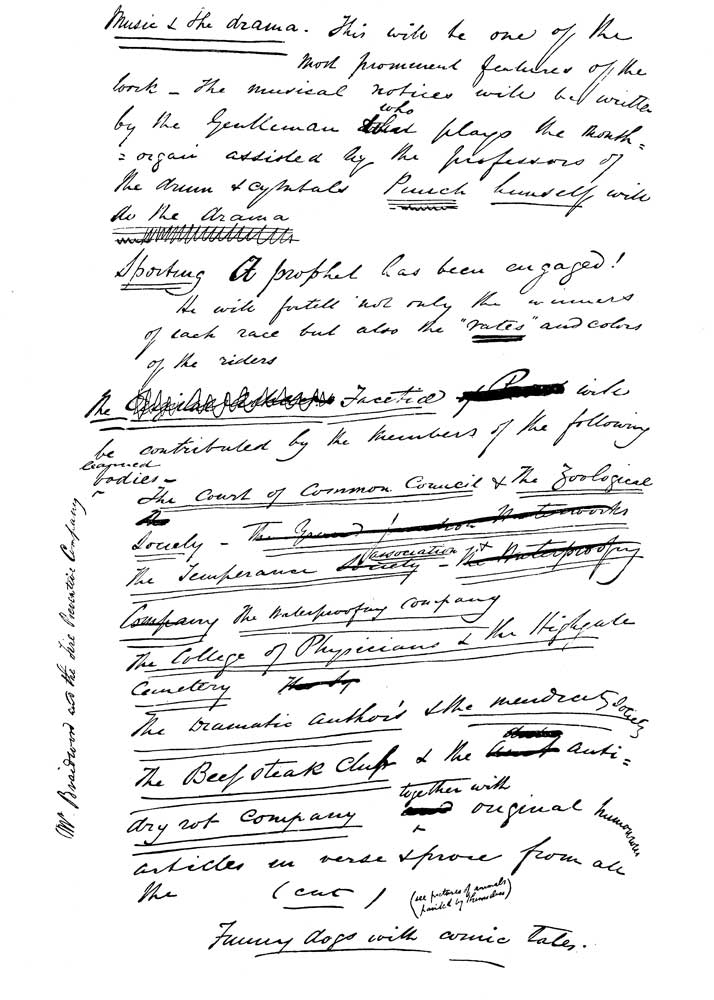 Music & the drama. This will be one of the
most prominent features of the
work – the musical notices will be written
by the Gentleman who plays the mouth=
=organ assisted by the professors of
the drum & cymbals Punch himself will
do the drama
Sporting A prophet has been engaged!
He will fortell not only the winners
of each race but also the "rates" and colors
of the riders
The Facetiæ will
be contributed by the Members of the following
learned
bodies –
The Court of Common Council & the Zoological
Society –
The Temperance association –
The Waterproofing company
The College of Physicians & the Highgate
Cemetery
The Dramatic Author's & the mendicity Society
The Beefsteak Club & the anti=
dry rot Company together with original humourous
articles in verse & prose from all
the (cut) (see pictures of animals
painted by themselves)
Funny dogs with comic tales.
Mr Braidwood and the Fire Preventive Company